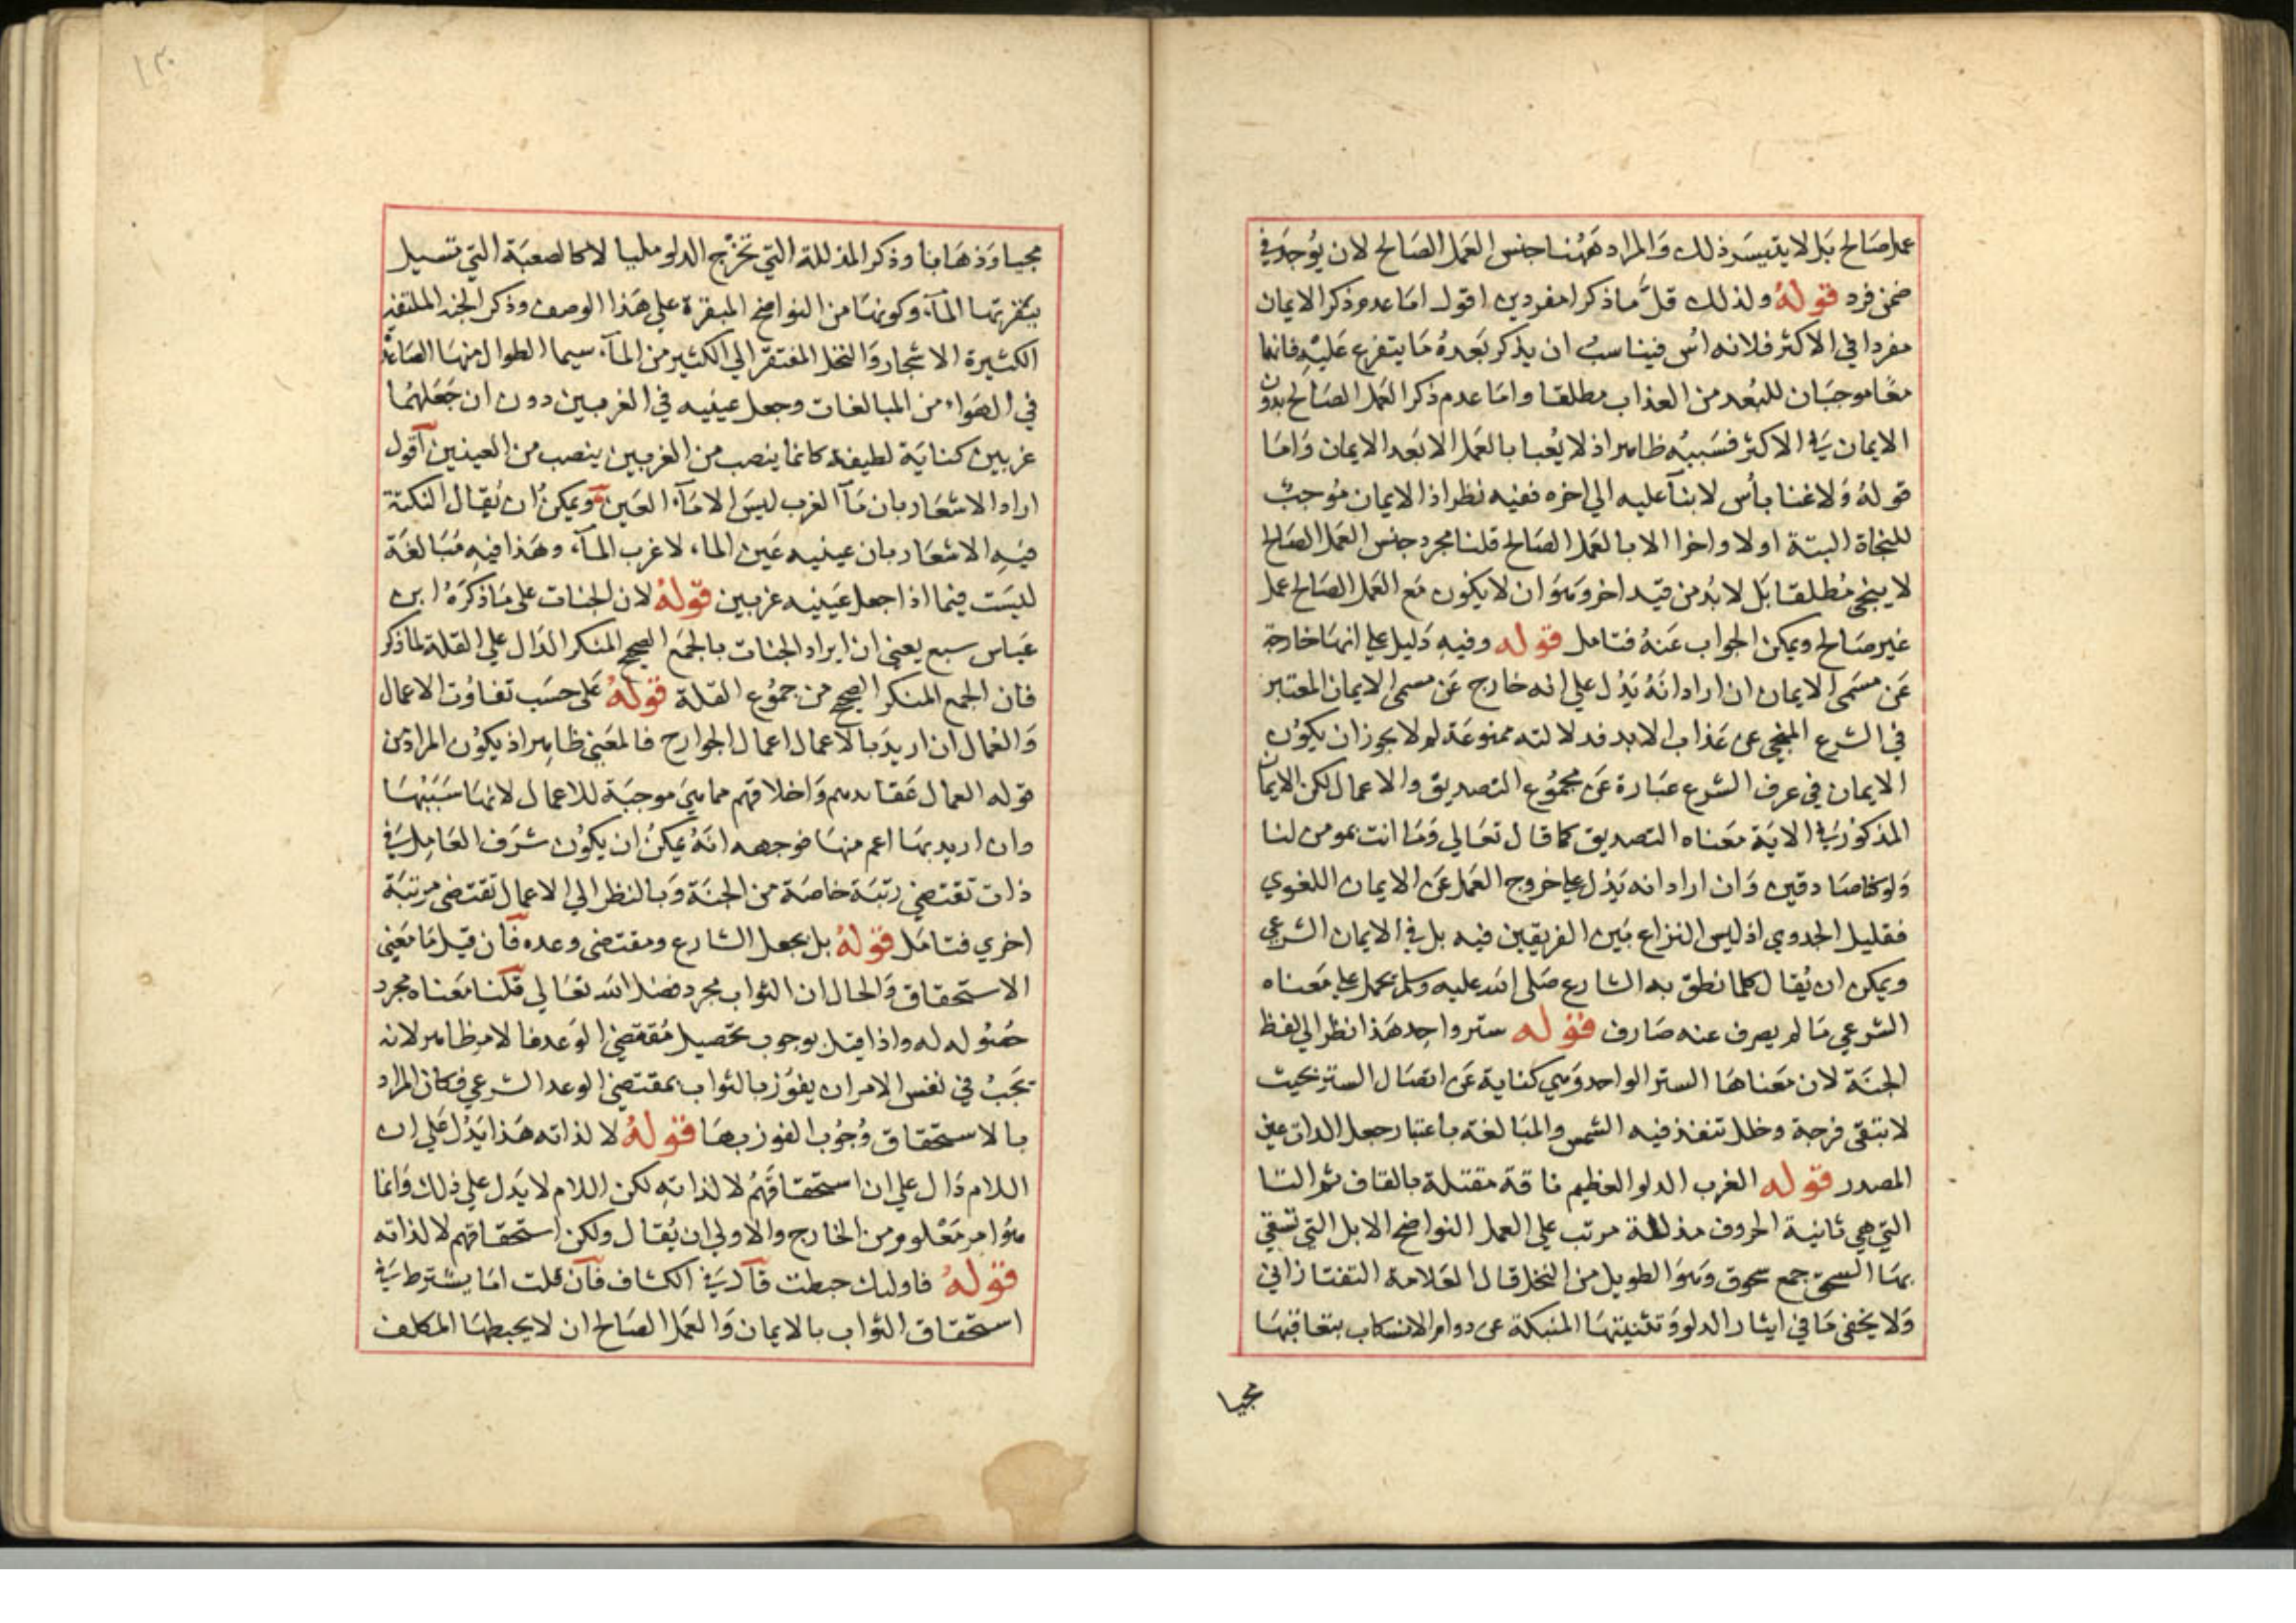 عمل صالح بل لا يتيسر ذلك والمراد ههنا جنس العمل الصالح لان يوجد في
ضمن فرد قوله ولذلك قل ما ذكرا مفردين اقول اما عدم ذكر الايمان
مفردا في الاكثر فلانه اس فيناسب ان يذكر بعده ما يتفرع عليه فانهما
معا موجبان للبعد من العذاب مطلقا واما عدم ذكر العمل الصالح بدون
الايمان في الاكثر فسببه ظاهر اذ لا يعبا بالعمل الا بعد الايمان واما
قوله ولا غنا بأس لا بنآ عليه الي اخره ففيه نظر اذ الايمان موجب
للنجاة البتة اولا واخرا الا بالعمل الصالح قلنا مجرد جنس العمل الصالح
لا ينجي مطلقا بل لا بد من قيد اخر وهو ان لا يكون مع العمل الصالح عمل
غير صالح ويمكن الجواب عنه فتامل قوله وفيه دليل علي انها خارجة
عن مسمي الايمان ان اراد انه يدل علي انه خارج عن مسمي الايمان المعتبر
في الشرع المنجي عن عذاب الابد فدلالته ممنوعة لم لا يجوز ان يكون
الايمان في عرف الشرع عبارة عن مجموع التصديق والاعمال لكن الايمان
المذكور في الاية معناه التصديق كما قال تعالي وما انت بمومن لنا
ولو كنا صادقين وان اراد انه يدل علي خروج العمل عن الايمان اللغوي
فقليل الجدوي اذ ليس النزاع بين الفريقين فيه بل في الايمان الشرعي
ويمكن ان يقال كلما نطق به الشارع صلى الله عليه وسلم يحمل علي معناه
الشرعي ما لم يصرف عنه صارف قوله ستر واحد هذا نظر الي لفظ
الجنة لان معناها الستر الواحد وهي كناية عن اتصال الستر بحيث
لا تبقي فرجة وخلل تنفذ فيه الشمس والمبالغة باعتبار جعل الذات عين
المصدر قوله الغرب الدلو العظيم ناقة مقتلة بالقاف ثم التا
التي هي ثانية الحروف مذللة مرتب علي العمل النواضح الابل التي تسقي
بها السحق جمع سحوق وهو الطويل من النخل قال العلامة التفتازاني
ولا يخفى ما في ايثار الدلو وتثنيتها المنبكة عن دوام الانسكاب بتعاقبها
مجيا
١٣٠
مجيا وذهابا وذكر المذللة التي تخرج الدلو مليا لا كالصعبة التي تسيل
بنفرتها المآء وكونها من النواضح المبقرة علي هذا الوصف وذكر الجنة الملتفة
الكثيرة الاشجار والنخل المفتقر الي الكثير من المآء سيما الطوال منها الصاعدة
في الهواء من المبالغات وجعل عينيه في الغربين دون ان جعلهما
غربين كناية لطيفة كانما ينصب من الغربين ينصب من العينين اقول
اراد الاشعار بان مآ الغرب ليس الا مآء العين ويمكن ان يقال النكتة
فيه الاشعار بان عينيه عين الماء لا غرب المآء وهذا فيه مبالغة
ليست فيما اذا جعل عينيه غربين قوله لان الجنات على ما ذكره ابن
عباس سبع يعني ان ايراد الجنات بالجمع الصحيح المنكر الدال علي القلة لما ذكر
فان الجمع المنكر الصحيح من جموع القلة قوله على حسب تفاوت الاعمال
والعمال ان اريد بالاعمال اعمال الجوارح فالمعني ظاهر اذ يكون المراد من
قوله العمال عقايدهم واخلاقهم مما هي موجبة للاعمال لانها سببها
وان اريد بها اعم منها فوجهه انه يمكن ان يكون شرف العامل في
ذات تقتضي رتبة خاصة من الجنة وبالنظر الي الاعمال تقتضي مرتبة
اخري فتامل قوله بل بجعل الشارع ومقتضى وعده فان قيل ما معني
الاستحقاق والحال ان الثواب مجرد فضل الله تعالي قلنا معناه مجرد
حصوله له واذا قيل بوجوب تحصيل مقتضي الوعد فالامر ظاهر لانه
يجب في نفس الامر ان يفوز بالثواب بمقتضي الوعد الشرعي فكان المراد
بالاستحقاق وجوب الفوز بها قوله لا لذاته هذا يدل علي ان
اللام دال علي ان استحقاقهم لا لذاته لكن اللام لا يدل علي ذلك وانما
هو امر معلوم من الخارج والاولي ان يقال ولكن استحقاقهم لا لذاته
قوله فاوليك حبطت قال في الكشاف فان قلت اما يشترط في
استحقاق الثواب بالايمان والعمل الصالح ان لا يحبطها المكلف